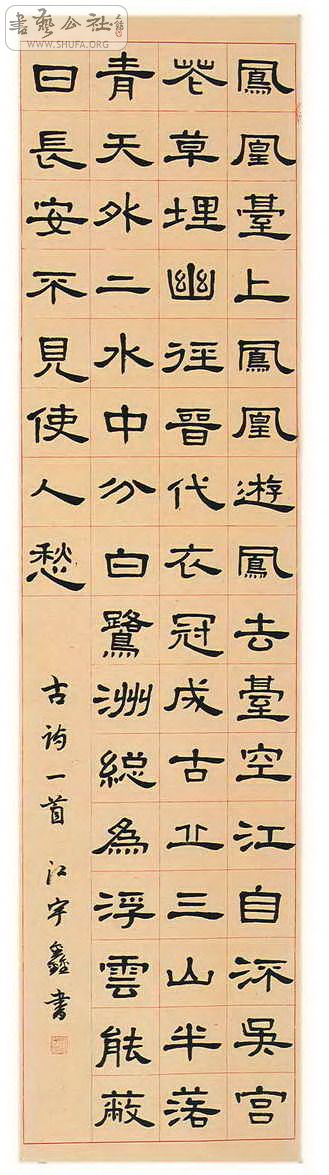 書藝公社
WWW.SHUFA.ORG
鳳凰臺上鳳凰遊鳳去臺空江自流吳宮
花草埋幽徑晉代衣冠成古丘三山半落
青天外二水中分白鷺洲総為浮雲能蔽
日長安不見使人愁
古詩一首 江宇鑫書